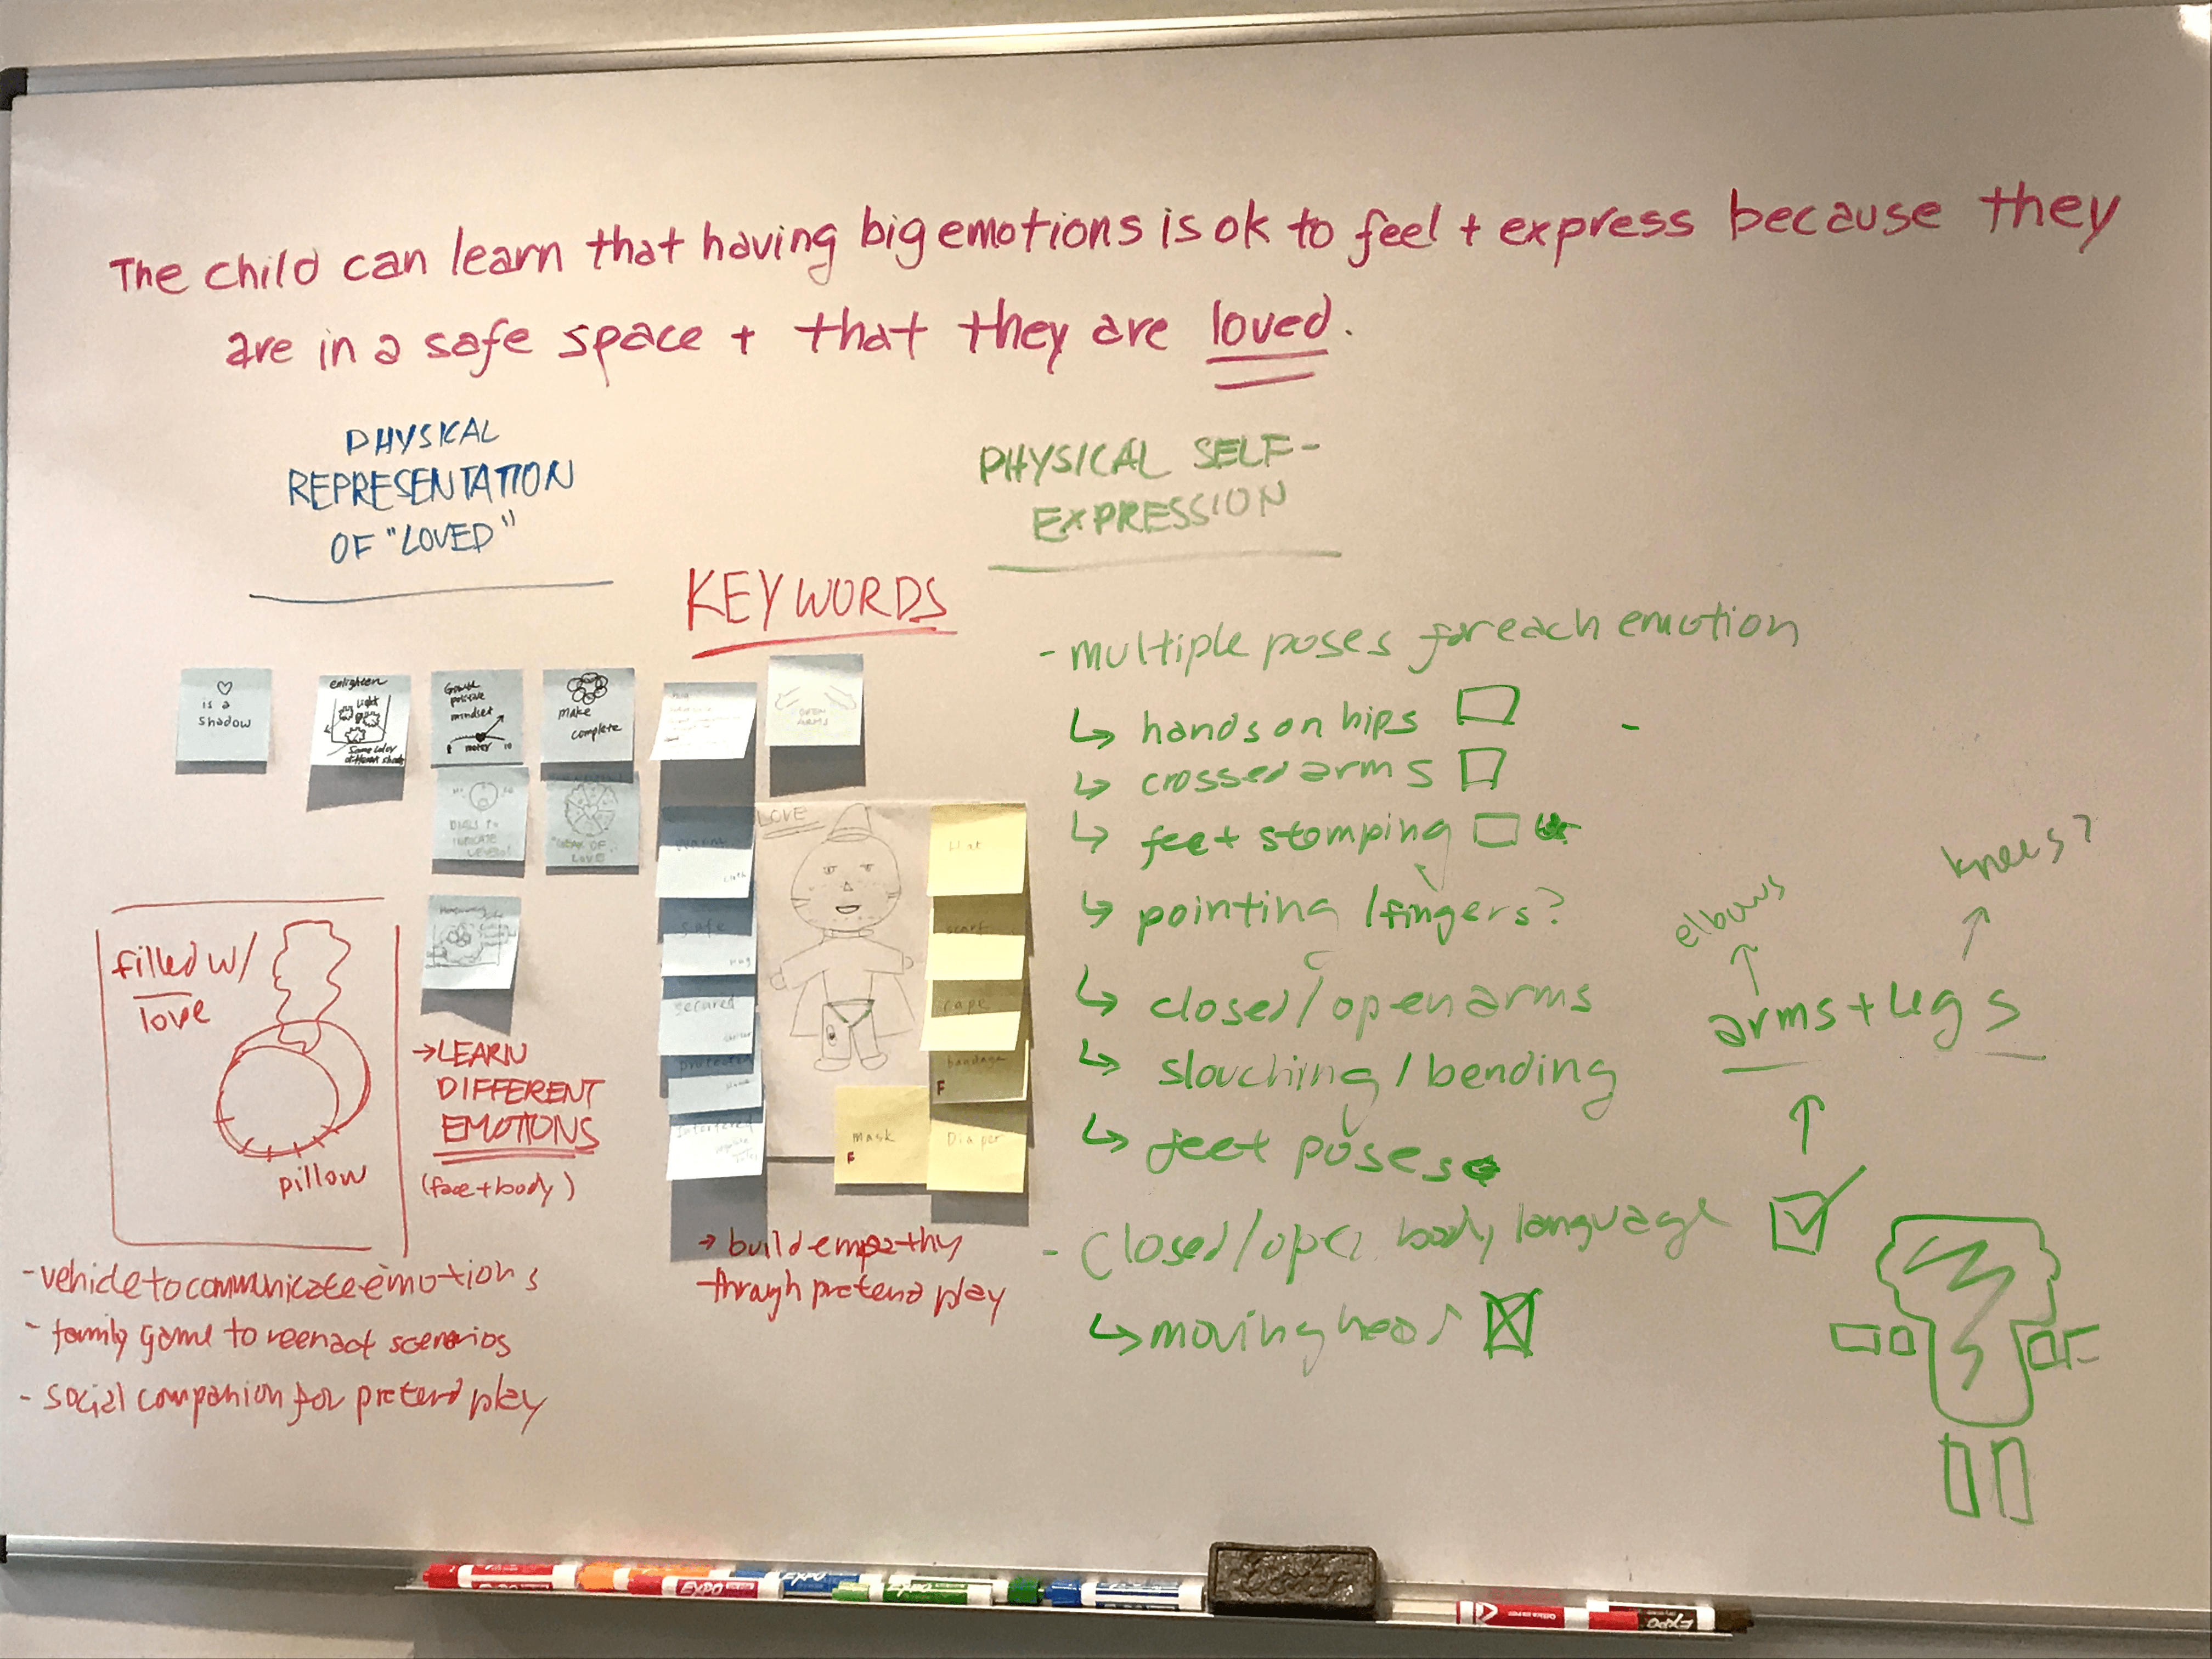 The child can learn that having big emotions is ok to feel + express because they
are in a safe space + that they are loved.
PHYSICAL
REPRESENTATION
OF "LOVED"
PHYSICAL SELF-
EXPRESSION
KEYWORDS
♡
is a
shadow
enlighten
Light
Same color
different shade
Growth
positive
mindset
meter 10
make
complete
OPEN
ARMS
DIALS TO
INDICATE
LEVELS?
LOVE
LOVE
safe
secured
protected
Hat
scarf
cape
bandage
F
mask
F
Diaper
filled w/
love
pillow
→ LEARN
DIFFERENT
EMOTIONS
(face + body)
- vehicle to communicate emotions
- family game to reenact scenarios
- social companion for pretend play
→ build empathy
through pretend play
- multiple poses for each emotion
↳ hands on hips
↳ crossed arms
↳ feet stomping
↳ pointing / fingers?
↳ closed / open arms
↳ slouching / bending
↳ feet poses
- Closed / open body language
↳ moving head
elbows
knees?
arms + legs
EXPO
EXPO
EXPO
EXPO